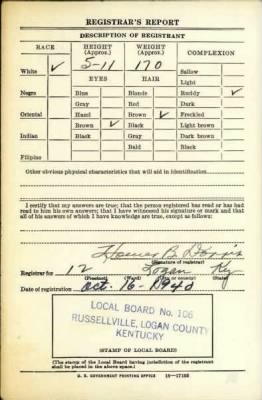 REGISTRAR'S REPORT
DESCRIPTION OF REGISTRANT
RACE HEIGHT (Approx.) WEIGHT (Approx.) COMPLEXION
White ✓ 5-11 170 Sallow
EYES HAIR Light
Negro Blue Blonde Ruddy ✓
Gray Red Dark
Oriental Hazel Brown ✓ Freckled
Brown ✓ Black Light brown
Indian Black Gray Dark brown
Bald Black
Filipino
Other obvious physical characteristics that will aid in identification
I certify that my answers are true; that the person registered has read or has had
read to him his own answers; that I have witnessed his signature or mark and that
all of his answers of which I have knowledge are true, except as follows:
Homer B.
(Signature of registrar)
Registrar for 12 Logan Ky
(Precinct) (Ward) (City or county) (State)
Date of registration Oct. 16-1940
LOCAL BOARD No. 106
RUSSELLVILLE, LOGAN COUNTY
KENTUCKY
(STAMP OF LOCAL BOARD)
(The stamp of the Local Board having jurisdiction of the registrant
shall be placed in the above space.)
U. S. GOVERNMENT PRINTING OFFICE